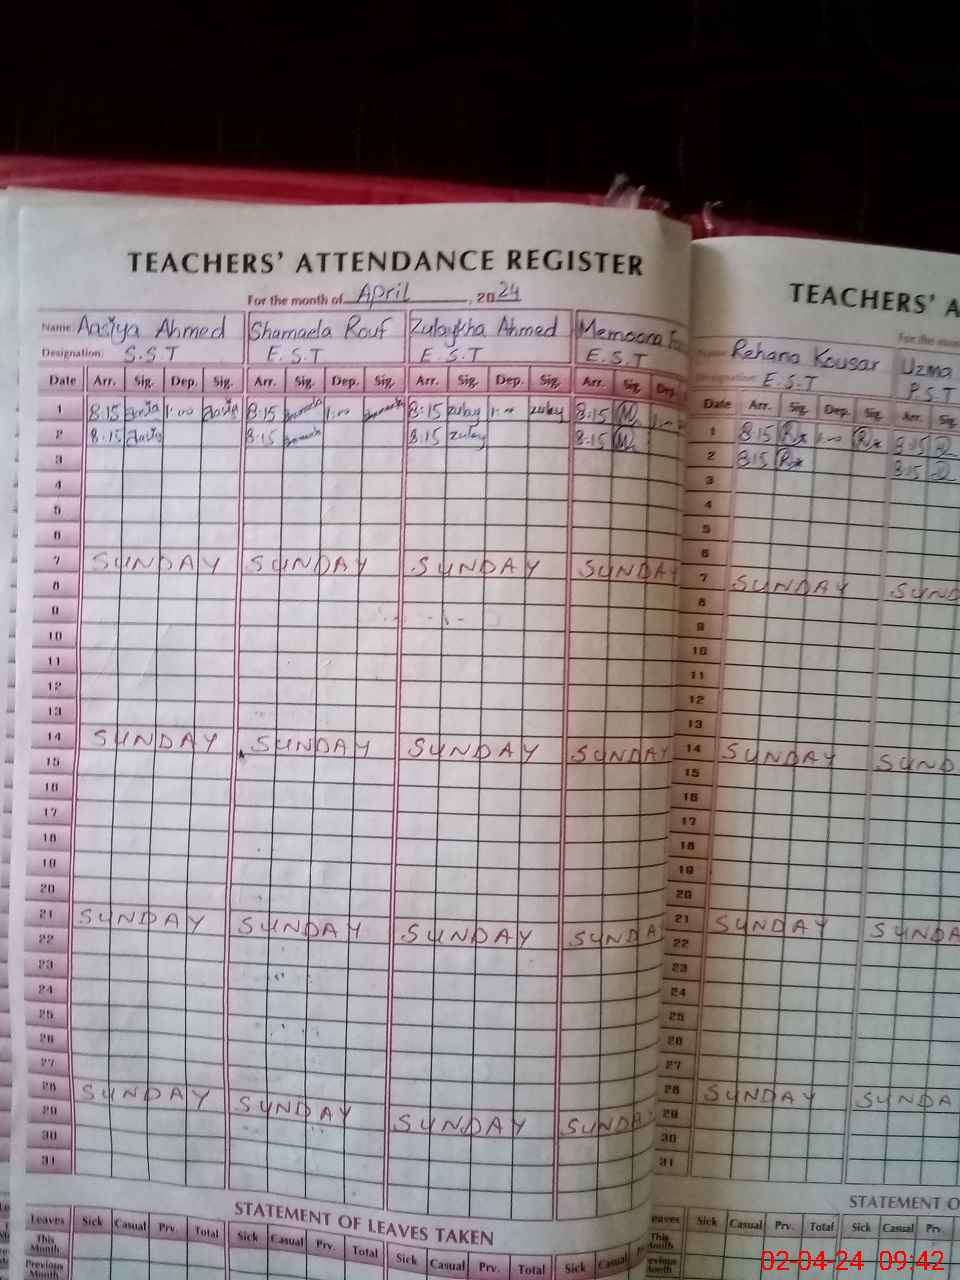 TEACHERS' ATTENDANCE REGISTER
For the month of April, 2024
Name: Aasiya Ahmed Shamaela Rouf Zulaykha Ahmed Memoona
Designation: S.S.T E.S.T E.S.T E.S.T
Date Arr. Sig. Dep. Sig. Arr. Sig. Dep. Sig. Arr. Sig. Dep. Sig. Arr. Sig. Dep.
1 8:15 1:00 8:15 1:00 8:15 zulay 1:00 zulay 8:15 M 1:00
2 8:15 8:15 8:15 zulay 8:15 M
3
4
5
6
7 SUNDAY SUNDAY SUNDAY SUNDAY
8
9
10
11
12
13
14 SUNDAY SUNDAY SUNDAY SUNDAY
15
16
17
18
19
20
21 SUNDAY SUNDAY SUNDAY SUNDAY
22
23
24
25
26
27
28 SUNDAY SUNDAY SUNDAY SUNDAY
29
30
31
STATEMENT OF LEAVES TAKEN
Leaves Sick Casual Prv. Total Sick Casual Prv. Total Sick Casual Prv. Total Sick Casual
This Month
Previous Month
TEACHERS' A
For the mon
Name: Rehana Kousar Uzma
E.S.T P.S.T
Date Arr. Sig. Dep. Sig. Arr. Sig.
1 8:15 1:00 8:15
2 8:15 8:15
3
4
5
6
7 SUNDAY SUND
8
9
10
11
12
13
14 SUNDAY SUND
15
16
17
18
19
20
21 SUNDAY SUNDA
22
23
24
25
26
27
28 SUNDAY SUNDA
29
30
31
STATEMENT O
eaves Sick Casual Prv. Total Sick Casual Prv.
This Month
Previous Month
02-04-24 09:42